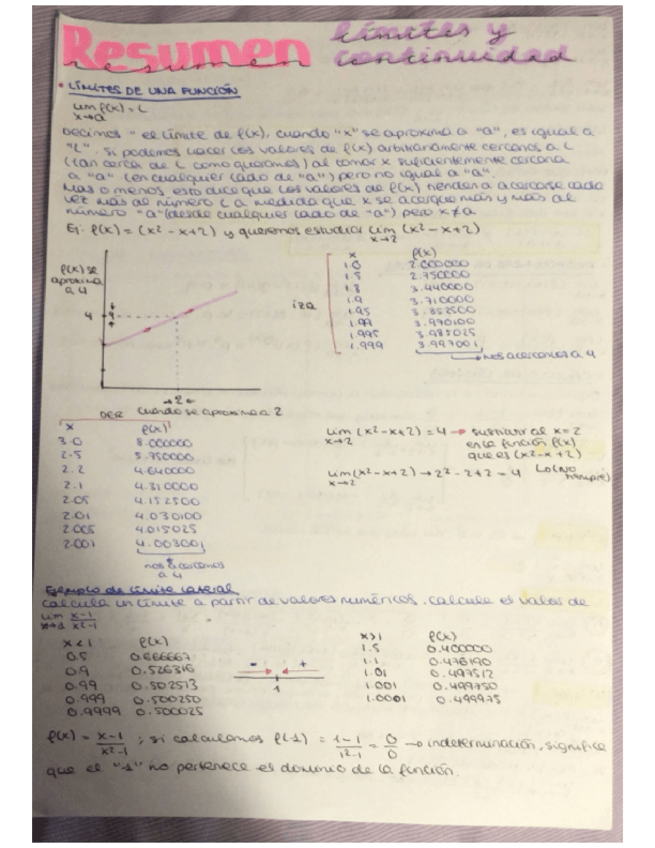 Resumen límites y
resumen continuidad
• LÍMITES DE UNA FUNCIÓN
lim f(x) = L
x→a
Decimos "el límite de f(x), cuando "x" se aproxima a "a", es igual a
"L". Si podemos hacer los valores de f(x) arbitrariamente cercanos a L
(tan cerca de L como queramos) al tomar x suficientemente cercana
a "a" (en cualquier lado de "a") pero no igual a "a".
Mas o menos esto dice que los valores de f(x) tienden a acercarse cada
vez más al número L a medida que x se acerque más y más al
número "a" (desde cualquier lado de "a") pero x≠a
Ej: f(x) = (x² - x + 2) y queremos estudiar lim (x² - x + 2)
x→2
f(x) se
aproxima
a 4
4
→2←
Cuando se aproxima a 2
izq
x f(x)
1.0 2.000000
1.5 2.750000
1.8 3.440000
1.9 3.710000
1.95 3.852500
1.99 3.970100
1.995 3.985025
1.999 3.997001
→ nos acercamos a 4
DER
x f(x)
3.0 8.000000
2.5 5.750000
2.2 4.640000
2.1 4.310000
2.05 4.152500
2.01 4.030100
2.005 4.015025
2.001 4.003001
nos acercamos
a 4
lim (x²-x+2) = 4 → sustituir al x=2
x→2 en la función f(x)
que es (x²-x+2)
lim (x²-x+2) → 2² - 2 + 2 = 4 (no
x→2 siempre)
Ejemplo de límite lateral
Calcula un límite a partir de valores numéricos. Calcula el valor de
lim x-1
x→1 x²-1
x<1 f(x)
0.5 0.666667
0.9 0.526316
0.99 0.502513
0.999 0.500250
0.9999 0.500025
- +
1
x>1 f(x)
1.5 0.400000
1.1 0.476190
1.01 0.497512
1.001 0.499750
1.0001 0.499975
f(x) = x-1 / x²-1 ; si calculamos f(-1) = 1-1 / 1²-1 = 0/0 → indeterminación, significa
que el "-1" no pertenece el dominio de la función.